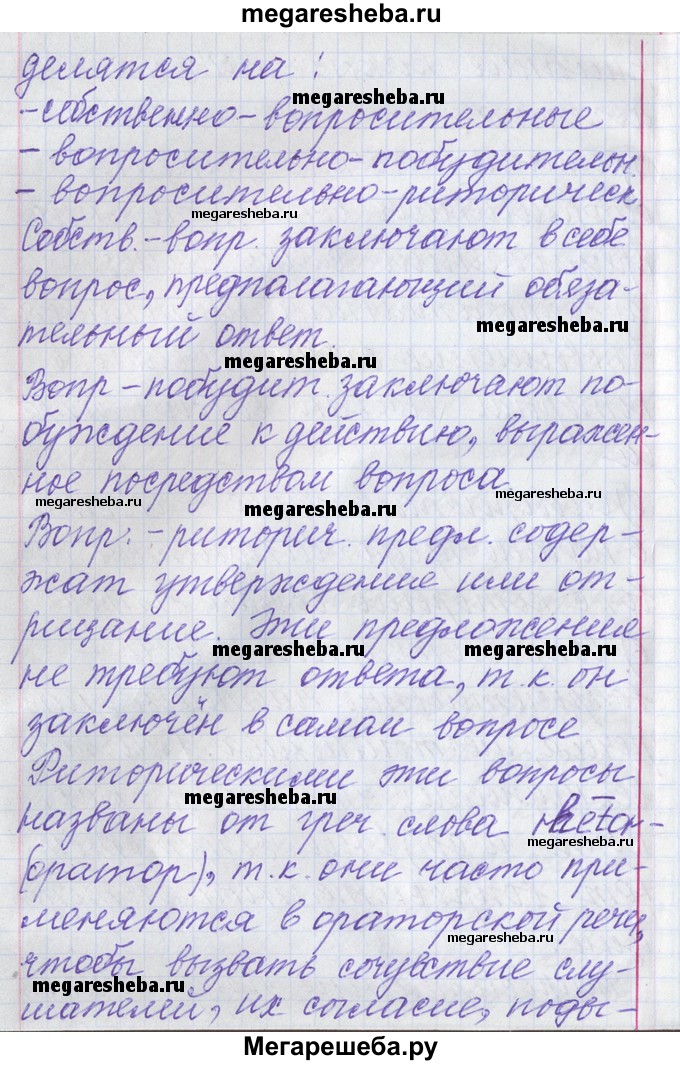 megaresheba.ru
делятся на:
megaresheba.ru
-собственно-вопросительные
- вопросительно-побудительн.
- вопросительно-риторическ.
megaresheba.ru
Собств.-вопр. заключают в себе
вопрос, предполагающий обяза-
тельный ответ.
megaresheba.ru
megaresheba.ru
Вопр-побудит. заключают по-
буждение к действию, выражен-
ное посредством вопроса
megaresheba.ru
megaresheba.ru
megaresheba.ru
Вопр.-риторич. предл. содер-
жат утверждение или от-
рицание. Эти предложения
megaresheba.ru
megaresheba.ru
не требуют ответа, т.к. он
заключён в самом вопросе
Риторическими эти вопросы
megaresheba.ru
названы от греч. слова
megaresheba.ru
(оратор), т.к. они часто при-
меняются в ораторской речи,
megaresheba.ru
чтобы вызвать сочувствие слу-
megaresheba.ru
шателей, их согласие, поды-
Мегарешеба.ру